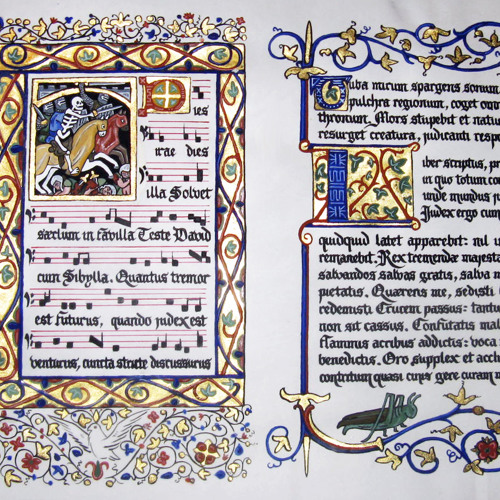 Dies
irae dies
illa Solvet
saeclum in favilla Teste David
cum Sibylla. Quantus tremor
est futurus, quando judex est
venturus, cuncta stricte discussurus
Tuba mirum spargens sonum
pulchra regionum, coget
thronum. Mors stupebit et natu
resurget creatura, judicanti respo
Liber scriptus, pr
in quo totum con
unde mundus ju
Judex ergo cum
quidquid latet apparebit: nil u
remanebit. Rex tremendae majesta
salvandos salvas gratis, salva m
pietatis. Quarens me, sedisti
redemisti Crucem passus: tantu
non sit cassus. Confutatis ma
flammis acribus addictis: voca
benedictis. Oro supplex et accli
contritum quasi cinis gere curam m